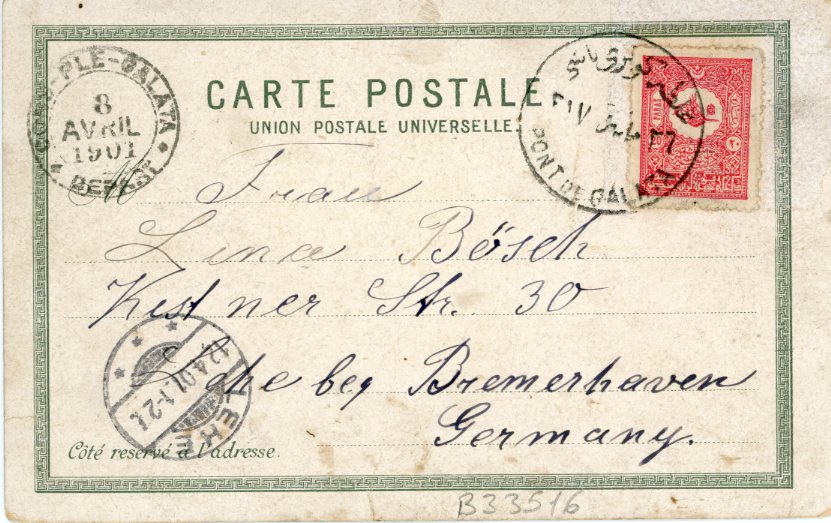 CONS-PLE-GALATA
8
AVRIL
1901
DEPART
CARTE POSTALE
UNION POSTALE UNIVERSELLE.
PONT DE GALATA
M
Frau
Lina Bösch
Kestner Str. 30
Lehe bey Bremerhaven
Germany.
LEHE
Côté reservé à l'adresse.
B33516